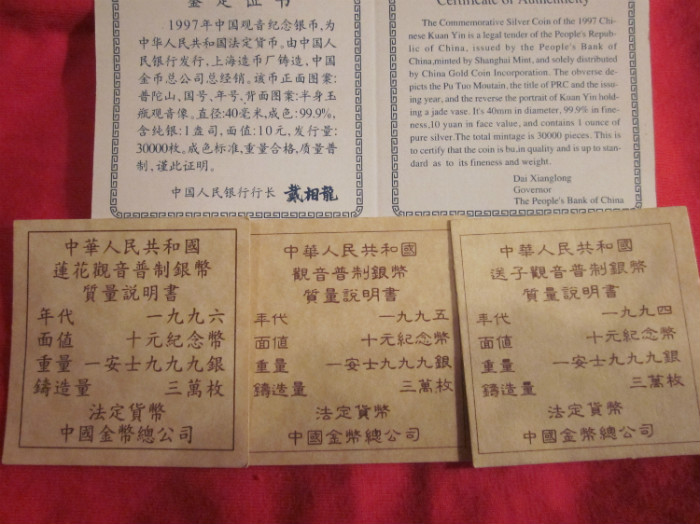 鉴定证书
1997年中国观音纪念银币,为
中华人民共和国法定货币。由中国人
民银行发行,上海造币厂铸造,中国
金币总公司总经销。该币正面图案:
普陀山,国号、年号,背面图案:半身玉
瓶观音像。直径:40毫米,成色:99.9%,
含纯银:1盎司,面值:10元,发行量:
30000枚。成色标准,重量合格,质量普
制、谨此证明。
中国人民银行行长 戴相龍
Certificate of Authenticity
The Commemorative Silver Coin of the 1997 Chi-
nese Kuan Yin is a legal tender of the People's Repub-
lic of China, issued by the People's Bank of
China,minted by Shanghai Mint, and solely distributed
by China Gold Coin Incorporation. The obverse de-
picts the Pu Tuo Moutain, the title of PRC and the issu-
ing year, and the reverse the portrait of Kuan Yin hold-
ing a jade vase. It's 40mm in diameter, 99.9% in fine-
ness,10 yuan in face value, and contains 1 ounce of
pure silver.The total mintage is 30000 pieces. This is
to certify that the coin is bu,in quality and is up to stan-
dard as to its fineness and weight.
Dai Xianglong
Governor
The People's Bank of China
中華人民共和國
蓮花觀音普制銀幣
質量説明書
年代 一九九六
面值 十元紀念幣
重量 一安士九九九銀
鑄造量 三萬枚
法定貨幣
中國金幣總公司
中華人民共和國
觀音普制銀幣
質量説明書
年代 一九九五
面值 十元紀念幣
重量 一安士九九九銀
鑄造量 三萬枚
法定貨幣
中國金幣總公司
中華人民共和國
送子觀音普制銀幣
質量説明書
年代 一九九四
面值 十元紀念幣
重量 一安士九九九銀
鑄造量 三萬枚
法定貨幣
中國金幣總公司